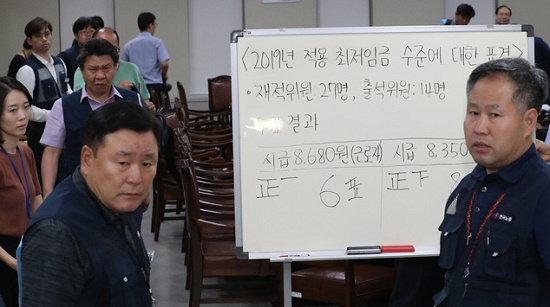 <2019년 적용 최저임금 수준에 대한 표결>
· 재적위원 27명, 출석위원: 14명
결과
시급 8.680원(근로자) 시급 8.350
正一 6표 正下 8